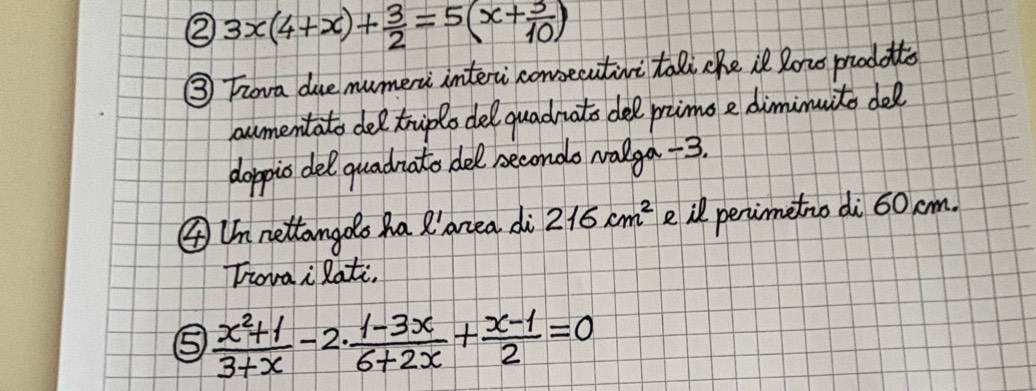 ② 3x(4+x)+3/2=5(x+3/10)
③ Trova due numeri interi consecutivi tali che il loro prodotto
aumentato del triplo del quadrato del primo e diminuito del
doppio del quadrato del secondo valga -3.
④ Un rettangolo ha l'area di 216 cm² e il perimetro di 60 cm.
Trova i lati.
⑤ (x²+1)/(3+x) - 2·(1-3x)/(6+2x) + (x-1)/2 = 0